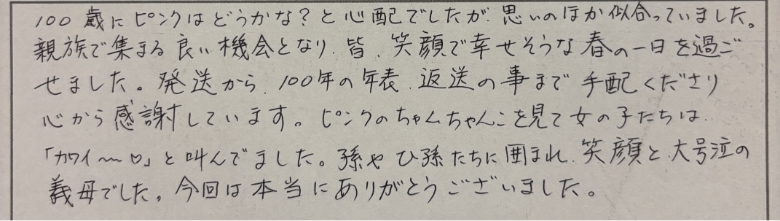 100歳にピンクはどうかな?と心配でしたが、思いのほか似合っていました。
親族で集まる良い機会となり、皆、笑顔で幸せそうな春の一日を過ご
せました。発送から、100年の年表、返送の事まで手配くださり
心から感謝しています。ピンクのちゃんちゃんこを見て女の子たちは
「カワイ〜♡」と叫んでました。孫やひ孫たちに囲まれ、笑顔と大号泣の
義母でした。今回は本当にありがとうございました。